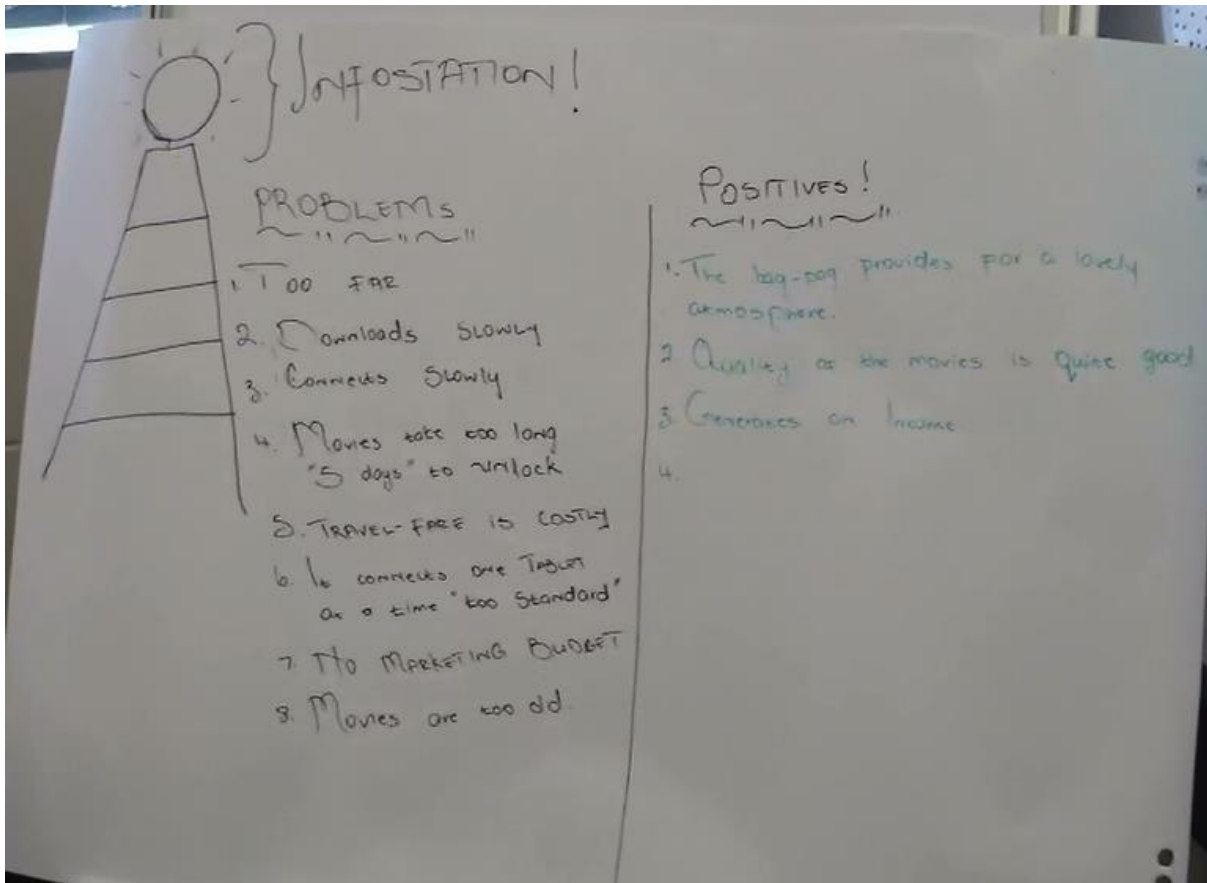 INFOSTATION!
PROBLEMS
1. TOO FAR
2. Downloads SLOWLY
3. Connects Slowly
4. Movies take too long
"5 days" to unlock
5. TRAVEL-FARE IS COSTLY
6. It connects one TABLET
at a time "too Standard"
7 NO MARKETING BUDGET
8. Movies are too old.
POSITIVES!
1. The provides for a lovely
atmosphere.
2 Quality of the movies is quite good
3. Generates an Income
4.